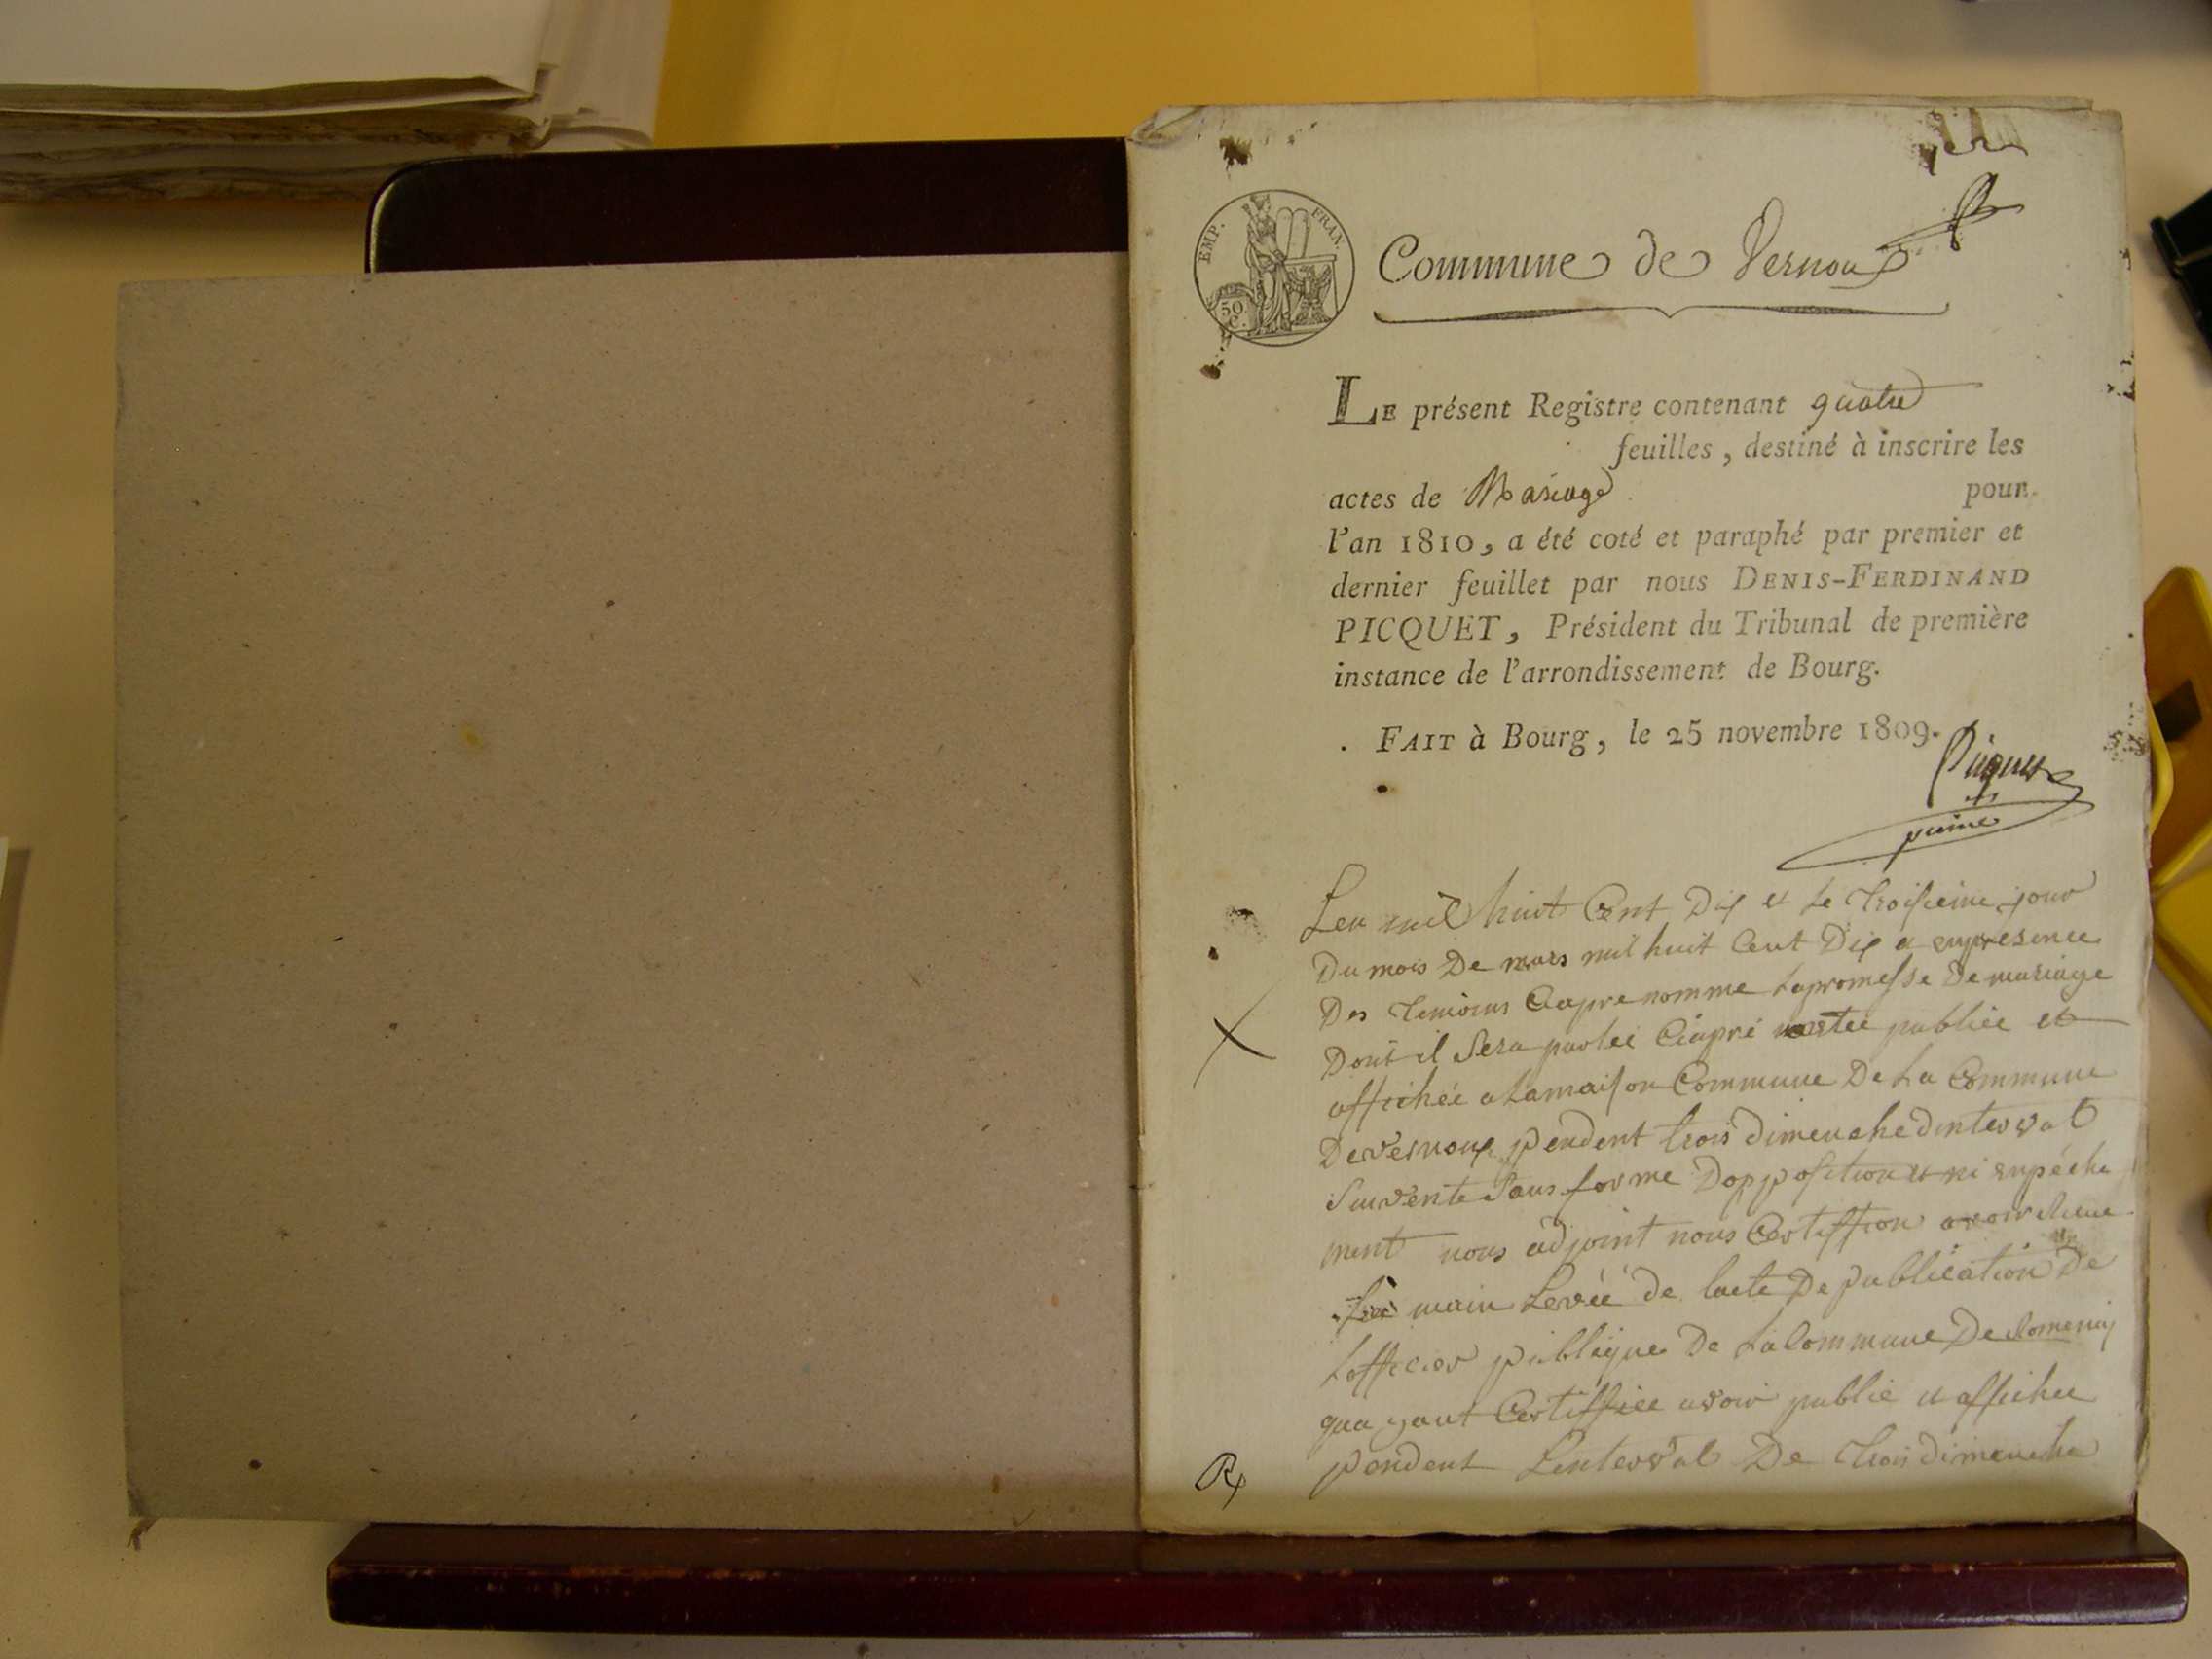 EMP. FRAN.
50 C.
Commune de Vernoux
LE présent Registre contenant quatre
feuilles, destiné à inscrire les
actes de Mariage pour
l'an 1810, a été coté et paraphé par premier et
dernier feuillet par nous DENIS-FERDINAND
PICQUET, Président du Tribunal de première
instance de l'arrondissement de Bourg.
FAIT à Bourg, le 25 novembre 1809.
Picquet
Lan mil huit Cent Dix et Le troisieme jour
Du mois De mars mil huit Cent Dix a enpresence
Des temoins Ciapre nomme Lapromesse De mariage
Dont il Sera parlei Ciapré publiée et
affichéé a Lamaison Commune De La Commune
Devernoux pendent trois dimenche dinterval
Suivente Sans forme Dopposition ni enpéche
ment nous adjoint nous Certiffion avoir
main Levéé de lacte De publication De
Lofficier publique De LaCommune De Romenaÿ
quayant Certiffiee avoir publié et affichee
pendent Linterval De trois dimenche